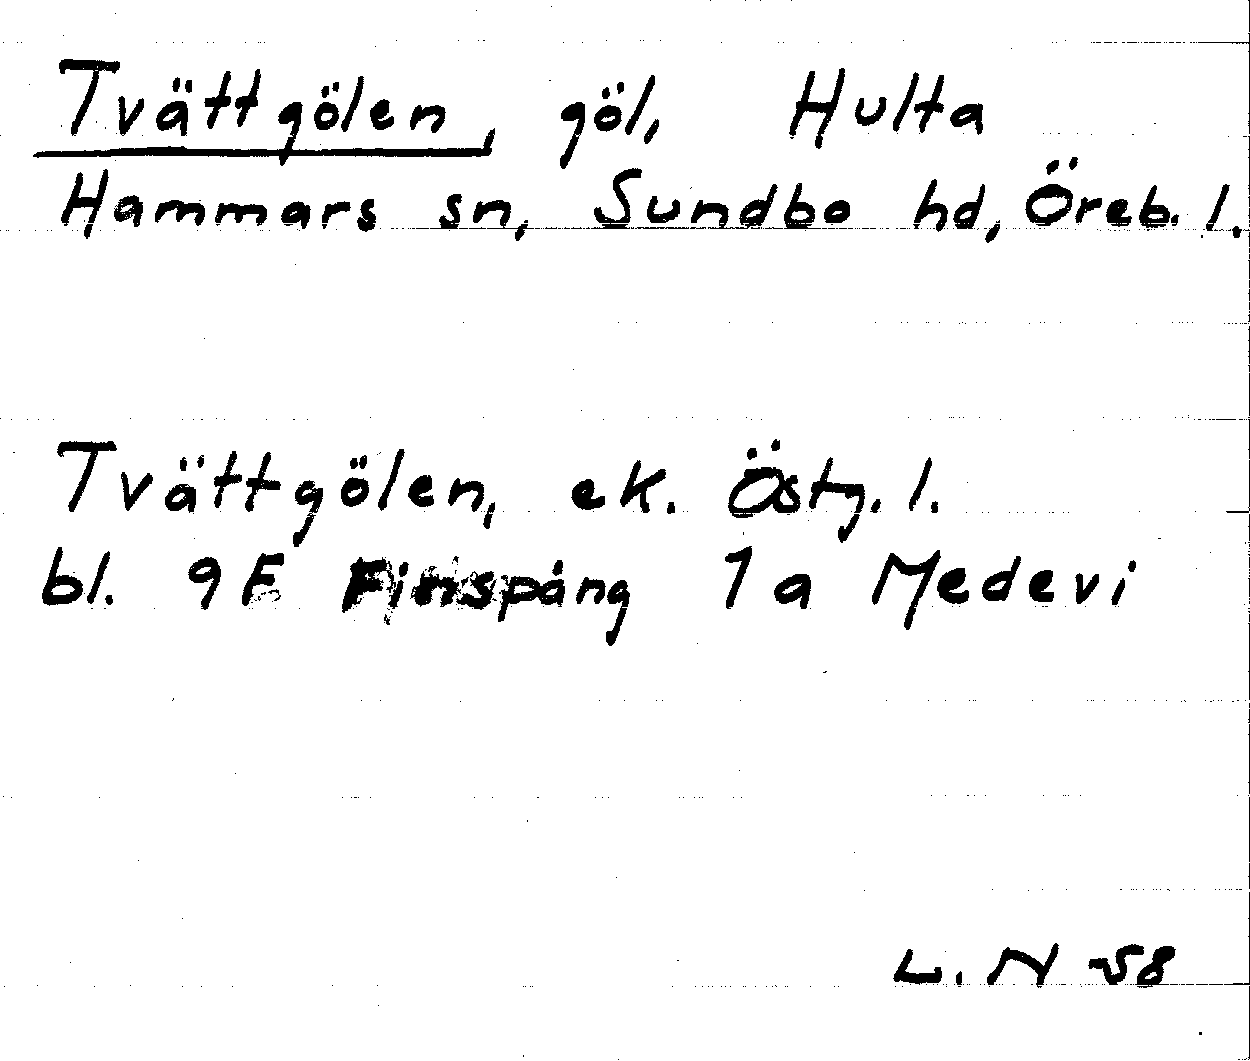 Tvättgölen, göl, Hulta
Hammars sn, Sundbo hd, Öreb. l.
Tvättgölen, ek. Östg. l.
bl. 9F Finspång 1a Medevi
L. N -58